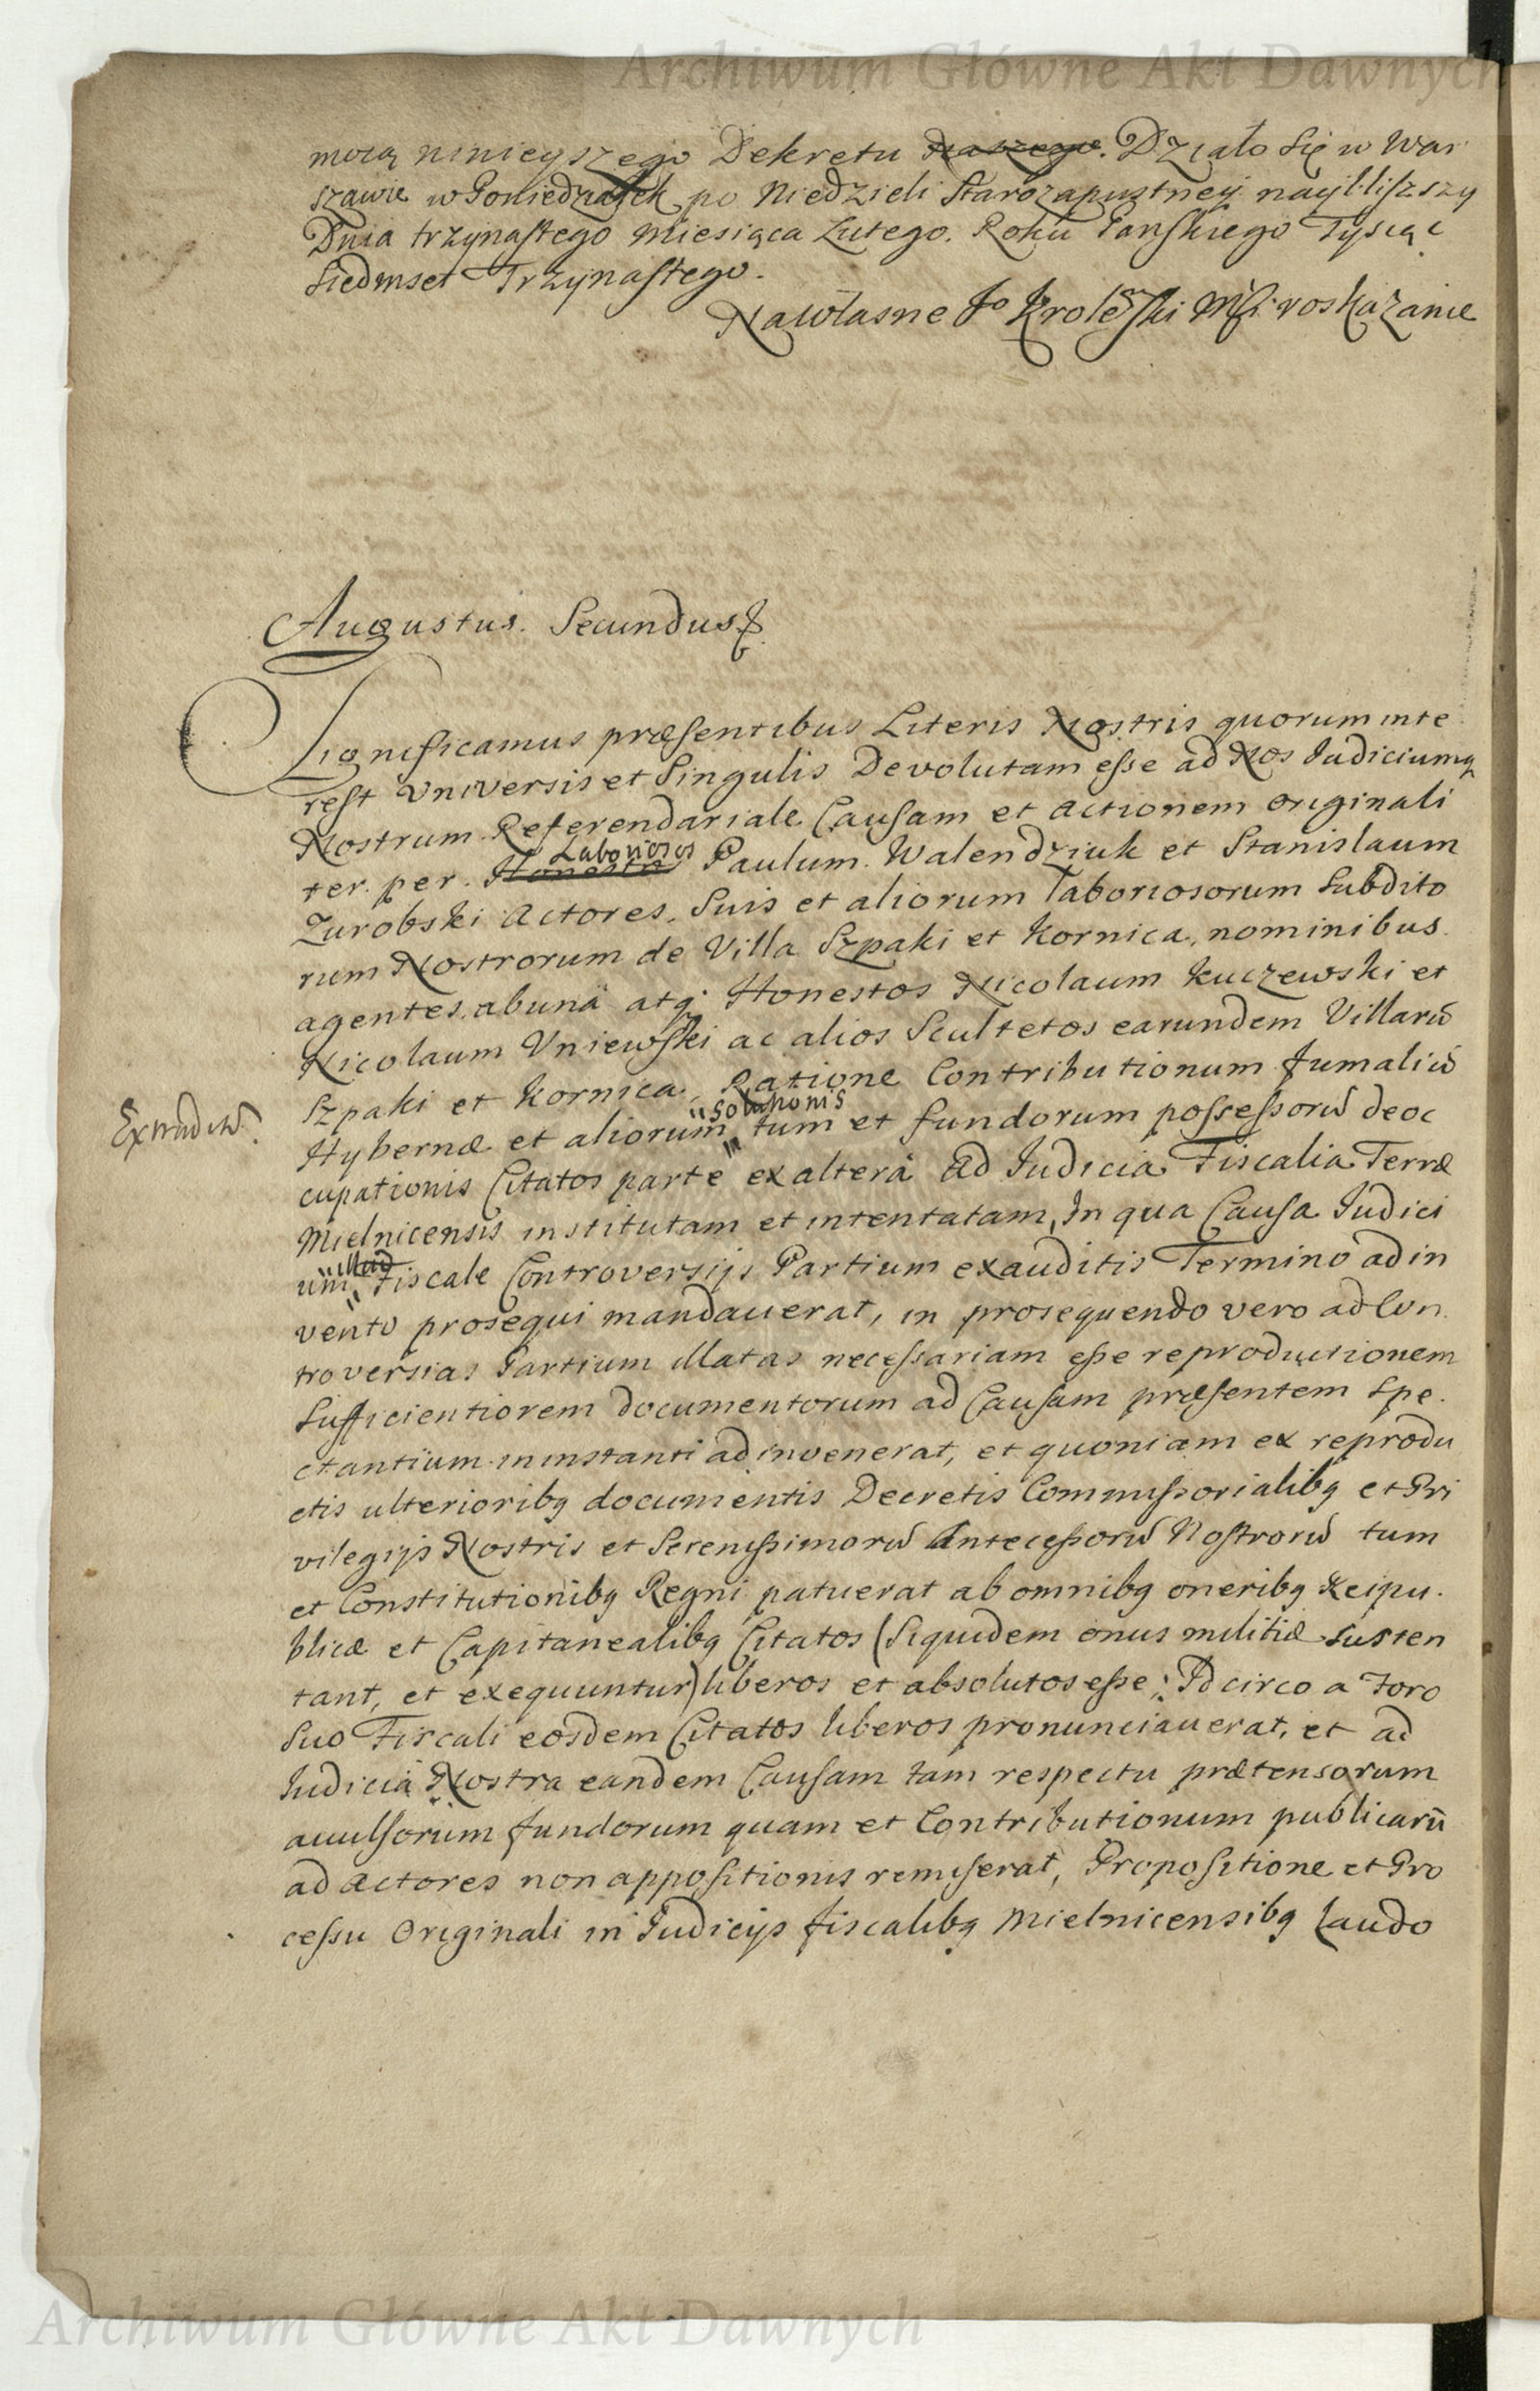 Archiwum Główne Akt Dawnych
mocą ninieyszego Dekretu naszego. Działo Się w War
szawie w Poniedziałek po Niedzieli Starozapustney nayblisszy
Dnia trzynastego Miesiąca Lutego. Roku Panskiego Tysiąc
Siedmset Trzynastego.
Nawłasne Jo Kroleski Mſi roskazanie
Augustus. Secundus
Significamus præsentibus Literis Nostris quorum inte
rest Vniversis et Singulis Devolutam esse ad Nos Iudiciumq
Nostrum Referendariale Causam et Actionem originali
Laboriosos
ter. per. Honestos Paulum. Walendziuk et Stanislaum
Zurobski Actores, Suis et aliorum laboriosorum Subdito
rum Nostrorum de Villa Szpaki et Kornica, nominibus
agentes, abunâ atq; Honestos Nicolaum Kuczewski et
Nicolaum Vniewski ac alios Scultetos earundem Villarũ
Szpaki et Kornica, Ratione Contributionum fumaliũ
Extraditũ.
solutionis
Hybernæ et aliorum tum et fundorum possessorũ deoc
cupationis Citatos parte ex alterâ Ad Iudicia Fiscalia Terræ
Mielnicensis institutam et intentatam, In qua Causa Iudici
illud
um Fiscale Controversijs Partium exauditis Termino adin
vento prosequi mandauerat, in prosequendo vero ad Con
troversias Partium illatas necessariam esse reproductionem
Sufficientiorem documentorum ad Causam præsentem Spe.
ctantium in instanti adinvenerat, et quoniam ex reprodu
ctis ulterioribq documentis Decretis Commissorialibq et Pri
vilegijs Nostris et Serenissimorũ Antecessorũ Nostrorũ tum
et Constitutionibq Regni patuerat ab omnibq oneribq Reipu.
blicæ et Capitanealibq Citatos (Siquidem onus militiæ susten
tant, et exequuntur) liberos et absolutos esse; Idcirco a Foro
Suo Fiscali eosdem Citatos liberos pronunciauerat, et ad
Iudicia Nostra eandem Causam tam respectu prætensorum
auulsorum fundorum quam et Contributionum publicarũ
ad Actores non appositionis remiserat, Propositione et Pro
cessu Originali in Iudicijs fiscalibq Mielnicensibq Laudo
Archiwum Główne Akt Dawnych